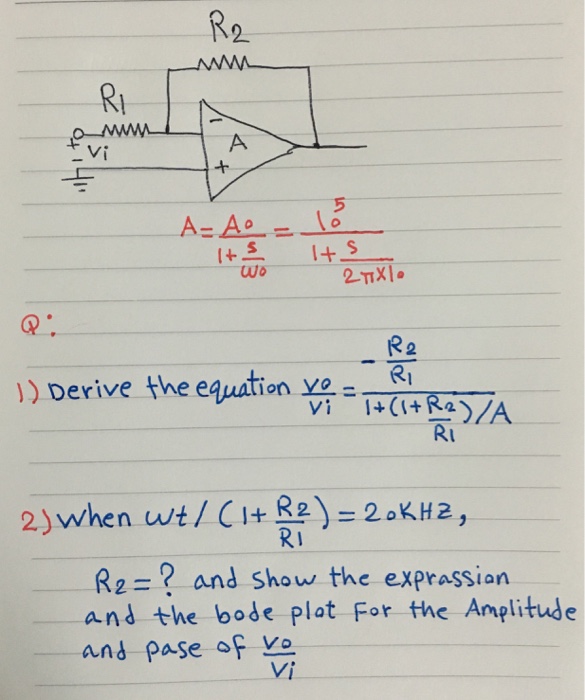 R2
R1
+
- Vi
-
A
+
A = A0/(1+s/ω0) = 10^5/(1+s/(2π×10))
Q:
1) Derive the equation vo/vi = (-R2/R1)/(1+(1+R2/R1)/A)
2) When wt/(1+R2/R1) = 20KHZ,
R2=? and show the exprassion
and the bode plot For the Amplitude
and pase of vo/vi